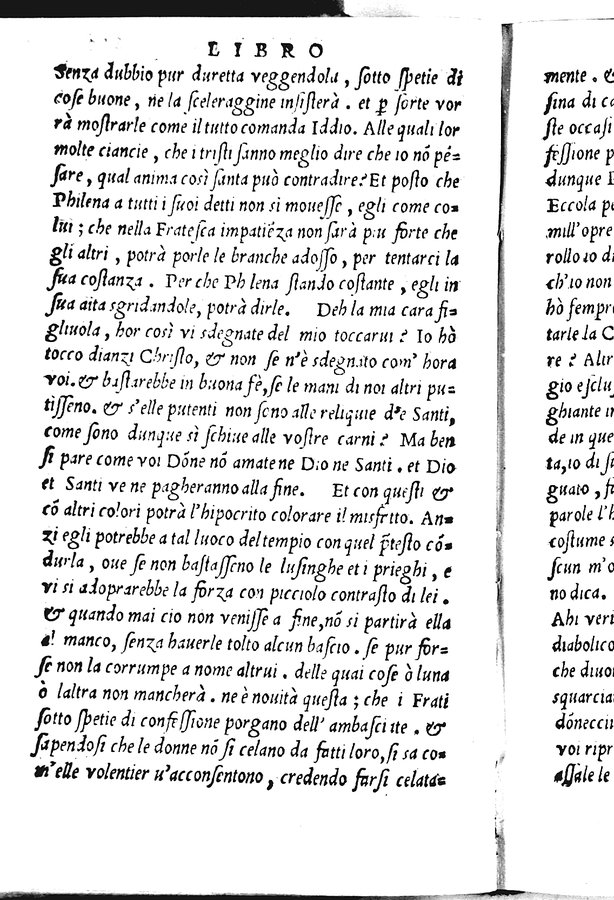 LIBRO
Senza dubbio pur duretta veggendola, sotto spetie di
cose buone, ne la sceleraggine insisterà. et ꝑ sorte vor
rà mostrarle come il tutto comanda Iddio. Alle quali lor
molte ciancie, che i tristi sanno meglio dire che io nõ pẽ=
sare, qual anima così santa può contradire? Et posto che
Philena a tutti i suoi detti non si mouesse, egli come co=
lui; che nella Fratesca impatiẽza non sarà piu forte che
gli altri, potrà porle le branche adosso, per tentarci la
sua costanza. Per che Philena stando costante, egli in
sua aita sgridandole, potrà dirle. Deh la mia cara fi=
gliuola, hor così vi sdegnate del mio toccarui? Io hò
tocco dianzi Christo, & non se n'è sdegnato com' hora
voi. & bastarebbe in buona fè, se le mani di noi altri pu=
tisseno. & s'elle putenti non sono alle reliquie d'e Santi,
come sono dunque sì schiue alle vostre carni? Ma ben
si pare come voi Dõne nõ amate ne Dio ne Santi. et Dio
et Santi ve ne pagheranno alla fine. Et con questi &
cõ altri colori potrà l'hipocrito colorare il misfatto. An=
zi egli potrebbe a tal luoco del tempio con quel p̃testo cõ=
durla, oue se non bastasseno le lusinghe et i prieghi, e
vi si adoprarebbe la forza con picciolo contrasto di lei.
& quando mai cio non venisse a fine, nõ si partirà ella
al manco, senza hauerle tolto alcun bascio. se pur for=
se non la corrumpe a nome altrui. delle quai cose ò luna
ò laltra non mancherà. ne è nouità questa; che i Frati
sotto spetie di confessione porgano dell' ambasciate. &
sapendosi che le donne nõ si celano da fatti loro, si sa co=
m'elle volentier u'acconsentono, credendo farsi celata=
mente. &
fina di ca
ste occasi
fessione p
dunque
Eccola pe
mill'opre
rollo io di
ch'io non
hò sempre
tarle la C
re? Altr
gio esclus
ghiante in
de in que
ta, io di si
guato, f
parole l'h
costume s
scun m'o
no dica.
Ahi veri
diabolico
che diuor
squarcia
dõnecciu
voi ripr
assale le